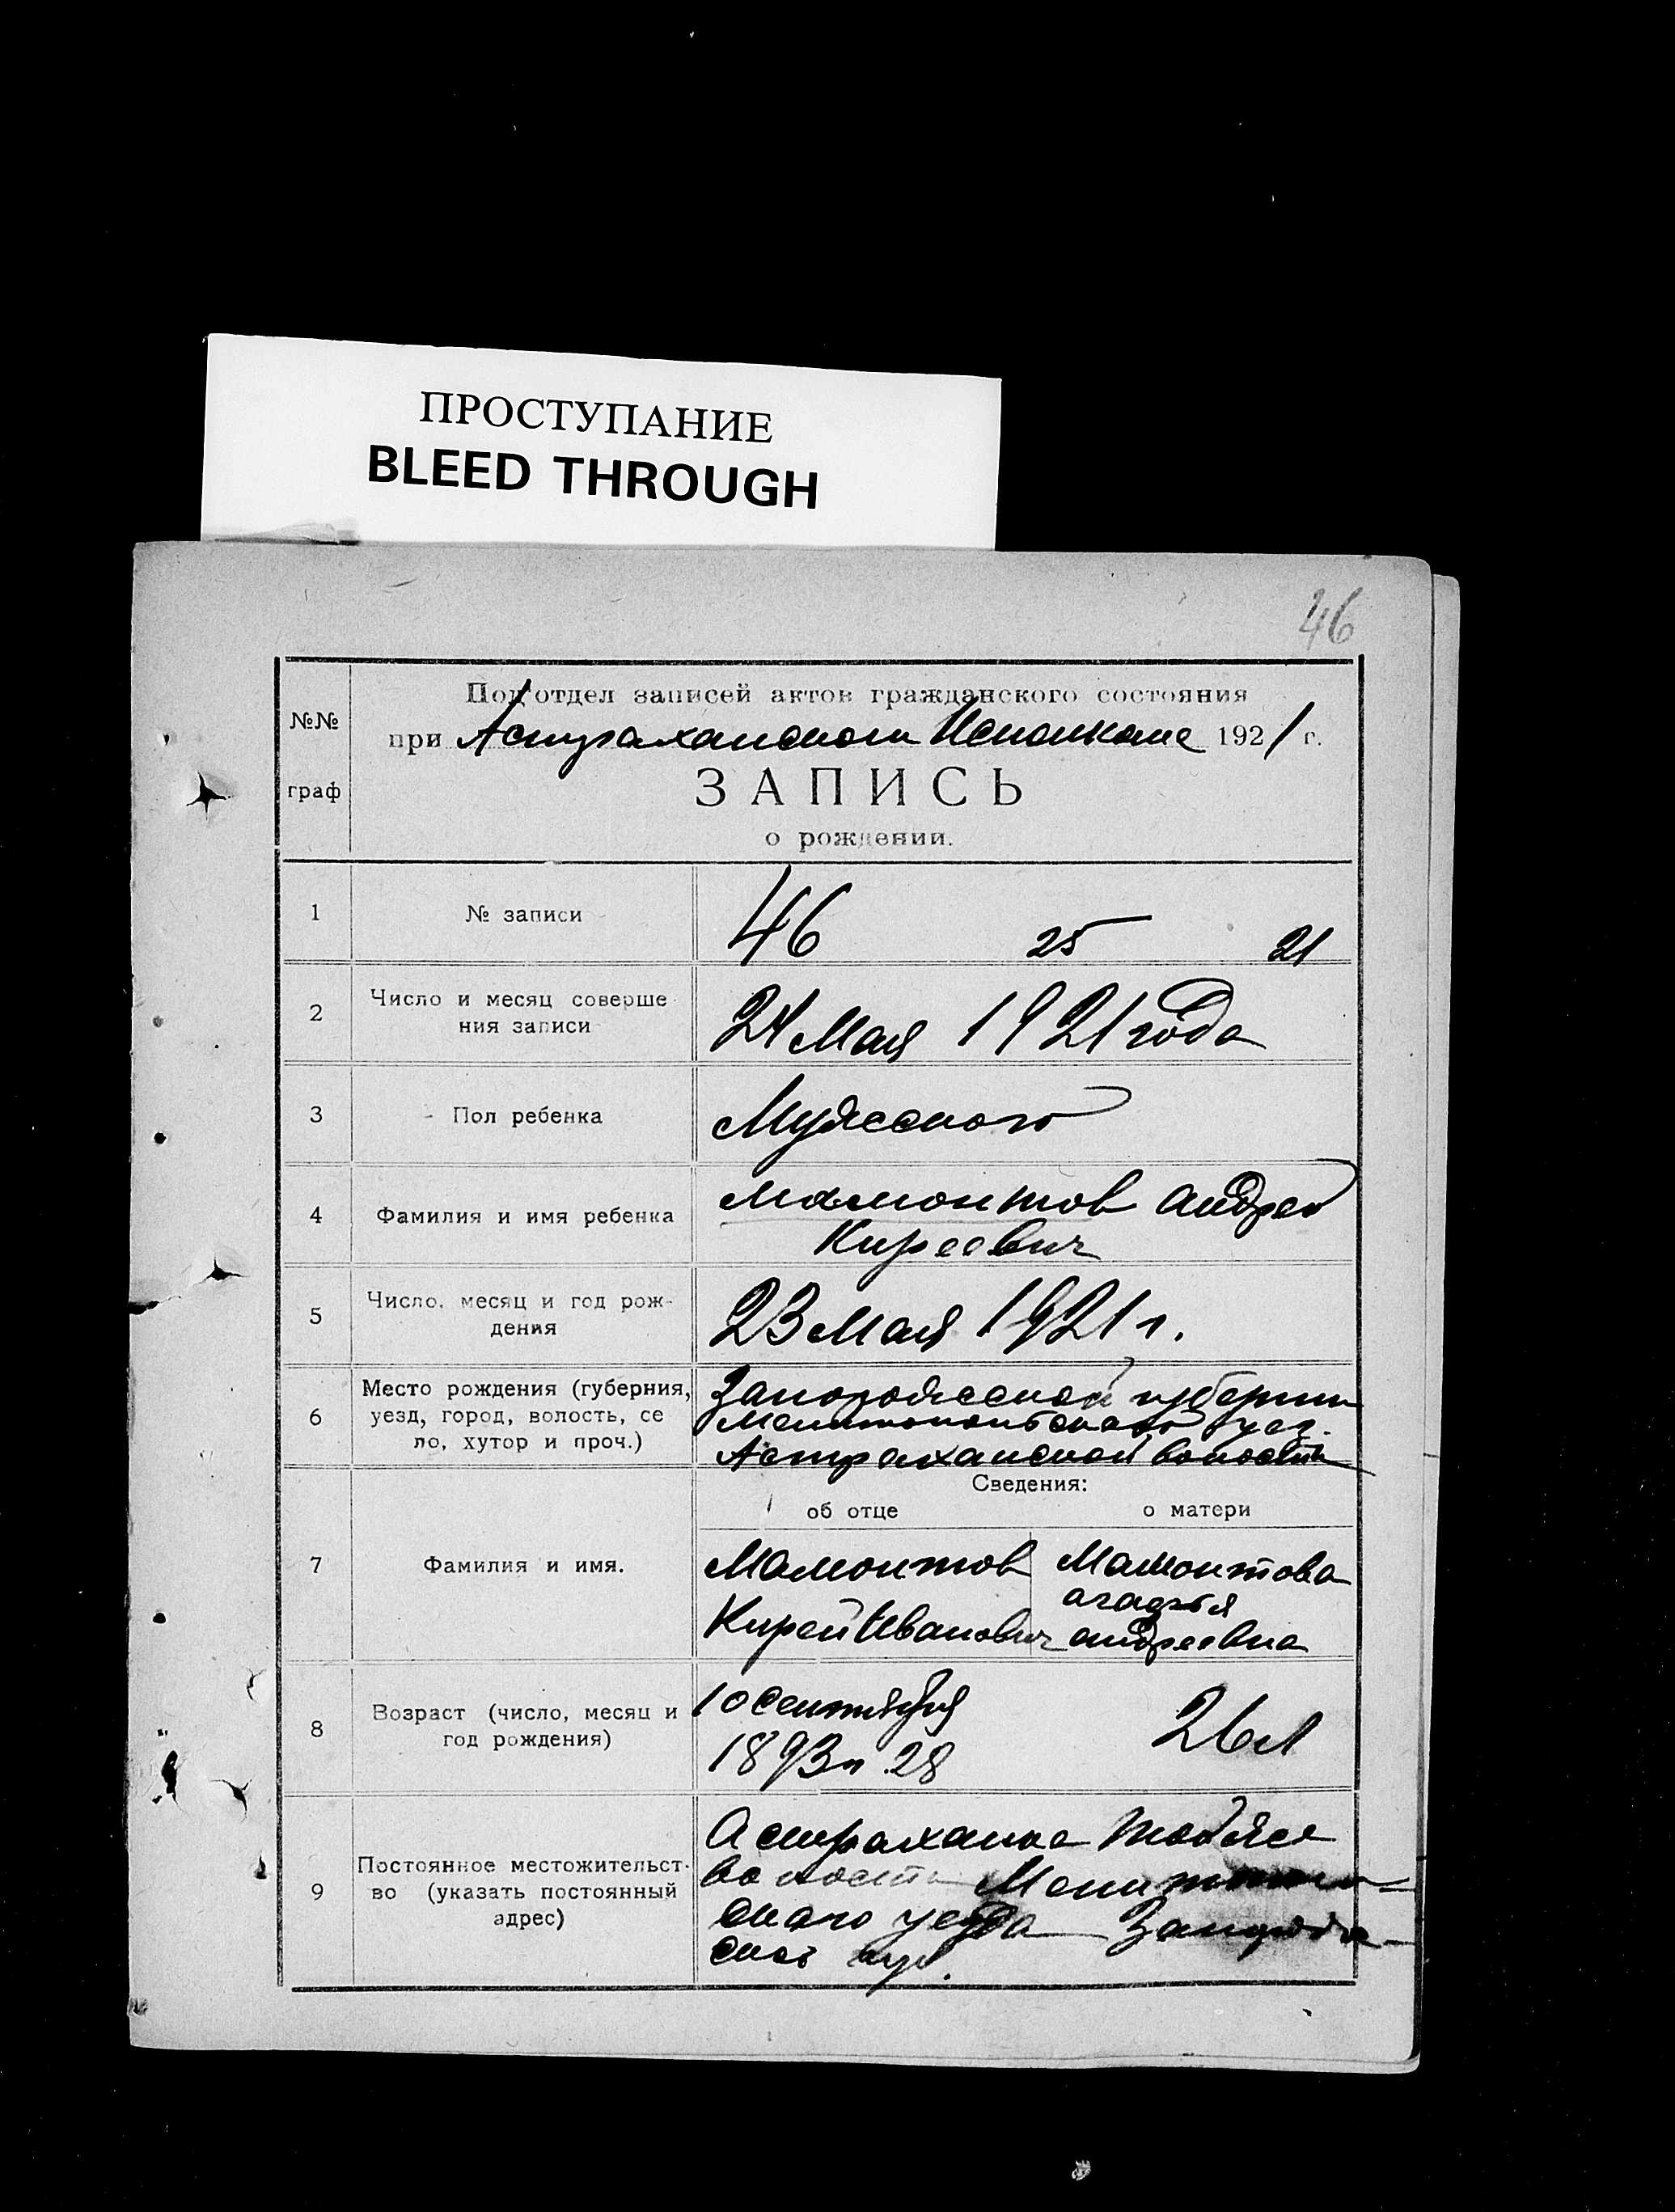 ПРОСТУПАНИЕ
BLEED THROUGH
46
Под'отдел записей актов гражданского состояния
№№ при Астраханском Исполкоме 1921 г.
граф ЗАПИСЬ
о рождении.
1 № записи 46 25 21
2 Число и месяц соверше
ния записи 24 Мая 1921 года
3 Пол ребенка Мужеского
4 Фамилия и имя ребенка Мамонтов Андрей
Киреевич
5 Число, месяц и год рож-
дения 23 Мая 1921 г.
6 Место рождения (губерния, Запорожеской губернии
уезд, город, волость, се Мелитопольского уез.
ло, хутор и проч.) Астраханской волости
Сведения:
об отце о матери
7 Фамилия и имя. Мамонтов Мамонтова
Кирей Иванович Андреевна
8 Возраст (число, месяц и 10 Сентября 26 л
год рождения) 1893 г. 28
9 Постоянное местожительст-
во (указать постоянный
адрес) Астраханка тоейже
волости
ского уезда
ской губ.